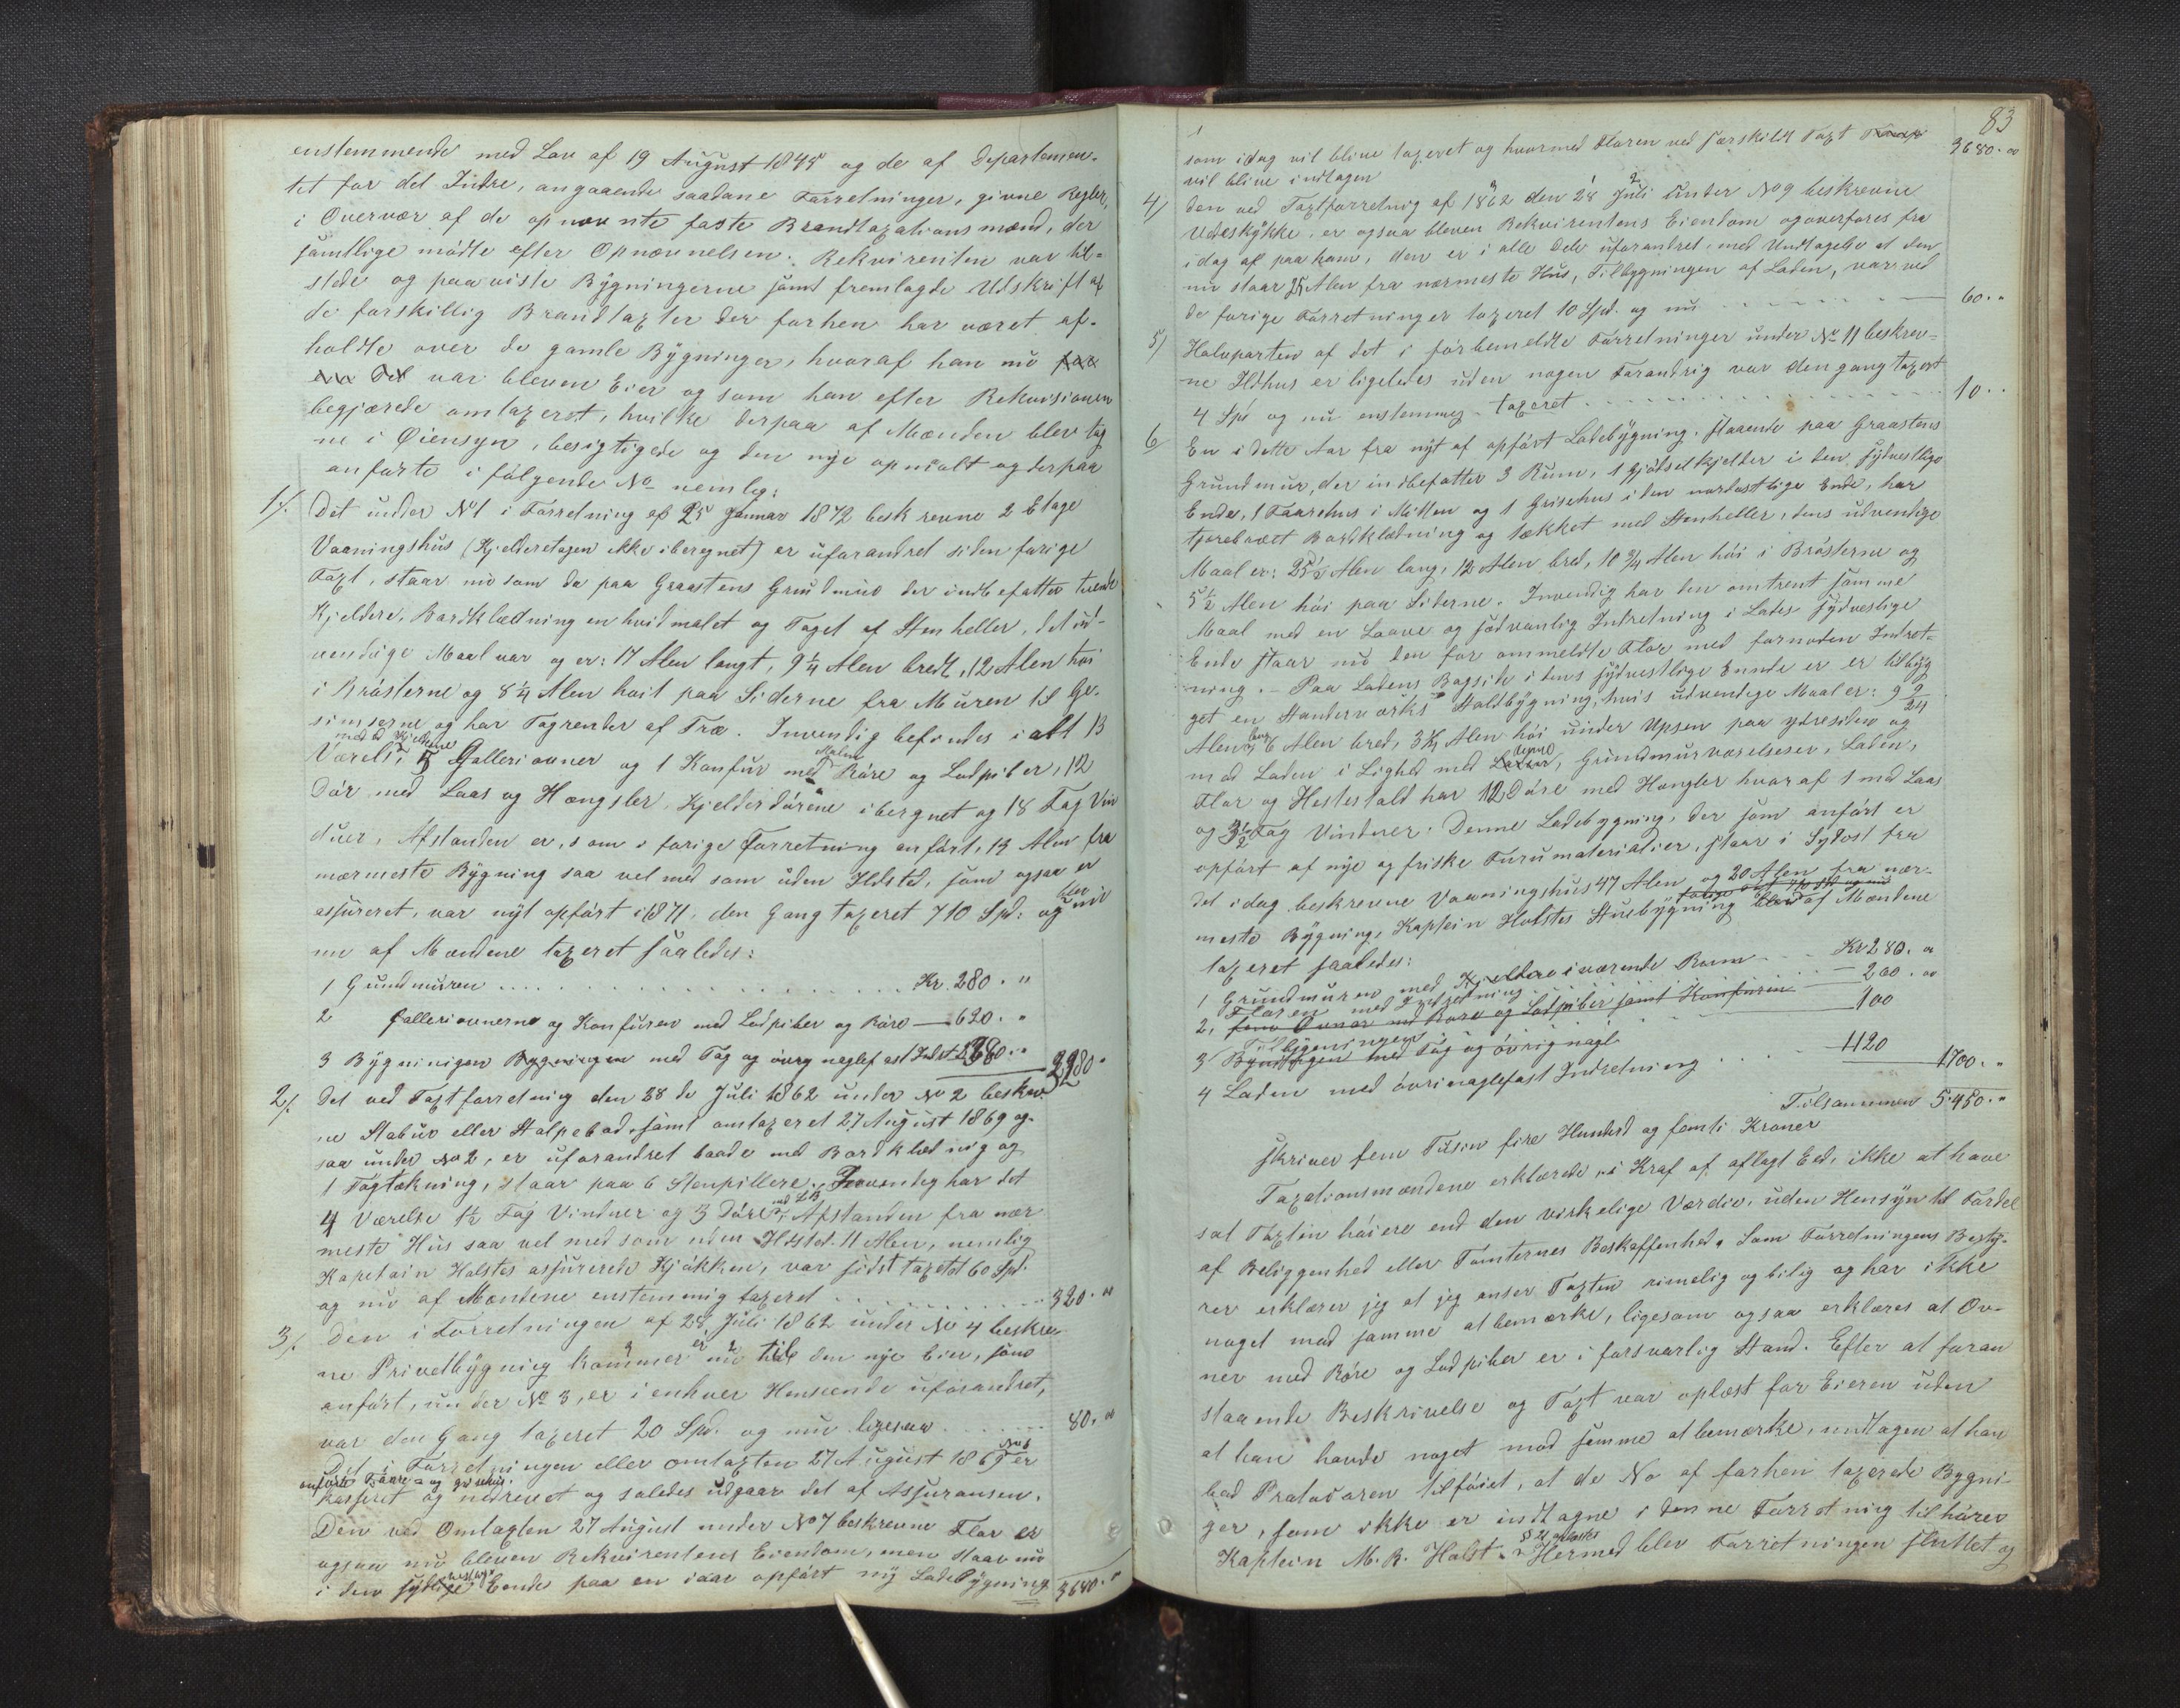 enstemmende med Lov af 19 August 1845 og de af Departemen-
tet for det Indre, angaaende saadane Forretninger, givne Regler,
i Overvær af de opnævnte faste Brandtaxationsmænd, der
samtlige mødte efter Opnævnelsen. Rekvirenten var til-
stede og paaviste Bygningerne samt fremlagde Udskrift af
de forskillig Brandtaxter der forhen har været af-
holdte over de gamle Bygninger, hvoraf han nu for
en Del var bleven Eier og som han efter Rekvisionen
begjærede omtaxeret, hvilke derpaa af Mænden blev tag
ne i Øiensyn, besigtigede og den nye opmalt og derpaa
anførte i følgende No nemlig:
1/. Det under No 1 i Forretning af 25 Januar 1872 beskrevne 2 Etage
Vaaningshus (Kjelderetagen ikke iberegnet) er uforandret siden forige
Taxt, staar nu som da paa Graastens Grundmur der indbefatter tvende
Kjeldere, Bordklædning en hvidmalet og Taget af Stenheller, det ud-
vendige Maal var og er: 17 Alen langt, 9 1/4 Alen bredt, 12 Alen høi
i Brøsterne og 8 1/4 Alen høit paa Siderne fra Muren til Ge-
simserne og har Tagrender af Træ. Invendig befindes i alt 13
med to Kjeldere
Værelser, 5 Galleriovner og 1 Komfur med Malm Røre og Lodpiber, 12
Dør med Laas og Hængsler, Kjelderdørene ibergnet og 18 Fag Vin
duer, Afstanden er, som i forige Forretning anført, 13 Alen fra
nærmeste Bygning saa vel med som uden Ildsted, som ogsaa er
assureret, var nyt opført i 1871, den Gang taxeret 710 Spd: og blev nu
nu af Mændene taxeret saaledes:
1 Gundmuren . . . . . . . . . Kr. 280. "
2 Galleriovnerne og Komfuren med Lodpiber og Røre — 620. "
3 Bygninigen Bygningen med Tag og øvrig naglefast Indret. 2380. " 3280. "
2/. Det ved Taxtforretning den 28 de Juli 1862 under No 2 beskrev
ne Stabur eller Stolpebod, samt omtaxeret 27 August 1869 og-
saa under No 2, er uforandret baade med Bordklædnig og
1 Tagtækning, staar paa 6 Stenpillere. Invendig har det
4 Værelse 1 1/2 Fag Vinduer og 3 Døre med LB, Afstanden fra nær
meste Hus saa vel med som uden Ildsted 11 Alen, nemlig
Kapetain Holstes assurerede Kjøkken, var sidst taxeret 60 Spd.
og nu af Mændene enstemmig taxeret . . . . . . . 320. "
3/. Den i Forretningen af 28 Juli 1862 under No 4 beskrev
ne Privetbygning kommer er nu til den nye Eier, som
anført, under No 3, er i enhver Henseende uforandret,
var den Gang taxeret 20 Spd. og nu ligesaa . . . . . 80. "
Det i Forretningen eller omtaxten 27 August 1869 No 6 er
anførte Faare- og grisehus.
kasseret og nedrevet og saledes udgaar det af Assuransen.
Den ved Omtaxten 27 August under No 7 beskrevne Flor er
ogsaa nu bleven Rekvirentens Eiendom, men staar nu
i den sydvestlige Eende paa en iaar opført ny Ladebygning 3680. "
83
som idag vil blive taxeret og hvormed Floren ved særskildt Taxt 3680. "
vil blive indtagen
4/ Den ved Taxtforretnig af 1862 den 28 Juli under No 9 beskrevne
Vedeskykke, er ogsaa bleven Rekvirentens Eiendom og overføres fra
idag af paa ham, den er i alle Dele uforandret, med Undtagelse at den
nu staar 25 Alen fra nærmeste Hus, Tilbygningen af Laden, var ved
de forige Forretninger taxeret 10 Spd. og nu . . . . . . — 60. "
5/ Halvparten af det i førbemeldte Forretninger under No 11 beskrev-
ne Ildhus er ligeledes uden nogen Forandrig var den gang taxert
4 Spd og nu enstemmig taxeret . . . . . . . . . 10. "
6 En i dette Aar fra nyt af opført Ladebygning, staaende paa Graastens
Grundmur, der indbefatter 3 Rum, 1 gjødselkjelder i den sydvestlige
Ende, 1 Faarehus i Mitten og 1 Grisehus i den nordostlige Ende, har
tjorebrædt Bordklædning og tækket med Stenheller, dens udvendige
Maal er: 25 1/2 Alen lang, 12 Alen bred, 10 3/4 Alen høi i Brøsterne og
5 1/2 Alen høi paa Siderne. Invendig har den omtrent samme
Maal med en Laave og sedvanlig Indretning i Lades sydveslige
Ende staar nu den for ommeldte Flor med fornøden Indret-
ning. - Paa Ladens Bagside i dens sydvestlige Eende er er tilbyg
get en Standerværks Staldbygning, hvis udvendige Maal er: 9 9/24
Alen lang 6 Alen bred, 3 3/4 Alen høi under Upsen paa ydresiden og
med Laden i Lighed med Laden denne, Grundmurværelseser, Laden,
Flor og Hestestald har 12 Døre med Hængler hvoraf 1 med Laas
og 3 1/2 Fag Vinduer: Denne Ladebygning, der som anført er
opført af nye og friske Furumaterialier, staar i Sydost fra
det idag beskrevne Vaaningshus 47 Alen og 20 Alen fra nær-
meste Bygning, Kaptein Holstes Stuebygning blev af Mændene
taxeret saaledes:
1 Grundmuren med Kjeldere iværende Rum . . . Kr 280. "
2, Floren med Indretning . . . . — 200. "
fem Ovner med Røre og Lodpiber samt Komfuren
3 Tilbygningen . . . . — 100
Bygningen med Tag og øvrig nagl.
4 Laden med øvrinaglefast Indretning . . . . — 1120 1700. "
Tilsammen 5450. "
skriver fem Tusin fire Hunderd og femti Kroner
Taxationsmændene erklærede, i Kraf af aflagt Eed, ikke at have
sat Taxten høiere end den virkelige Værdie, uden Hensyn til Fordel
af Beliggenhed eller Tomternes Beskaffenhed. Som Forretningens Besty-
rer erklærer jeg at jeg anser Taxten rimelig og bilig og har ikke
noget mod samme at bemærke, ligesom ogsaa erklæres at Ov-
ner med Røre og Lodpiber er i forsvarlig Stand. Efter at foran
staaende Beskrivelse og Taxt var oplæst for Eieren uden
at han havde noget mod samme at bemærke, undtagen at han
bad Protocoren tilføiet, at de No af forhen taxerede Bygni-
ger, som ikke er indtagne i denne Forretning tilhører
Kaptein M. R. Holst. Hermed blev Forretningen sluttet og